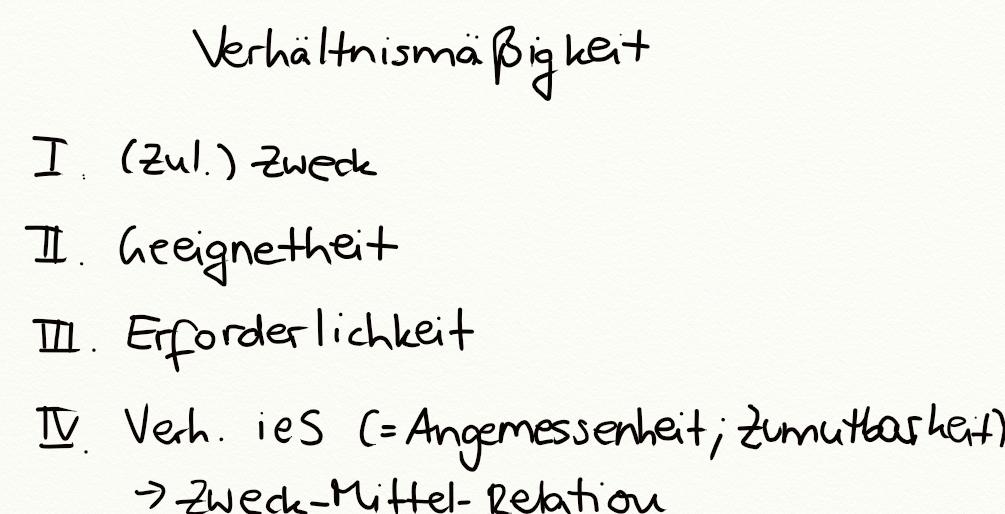 Verhältnismäßigkeit
I. (Zul.) Zweck
II. Geeignetheit
III. Erforderlichkeit
IV. Verh. ieS (= Angemessenheit; Zumutbarkeit)
→ Zweck-Mittel-Relation